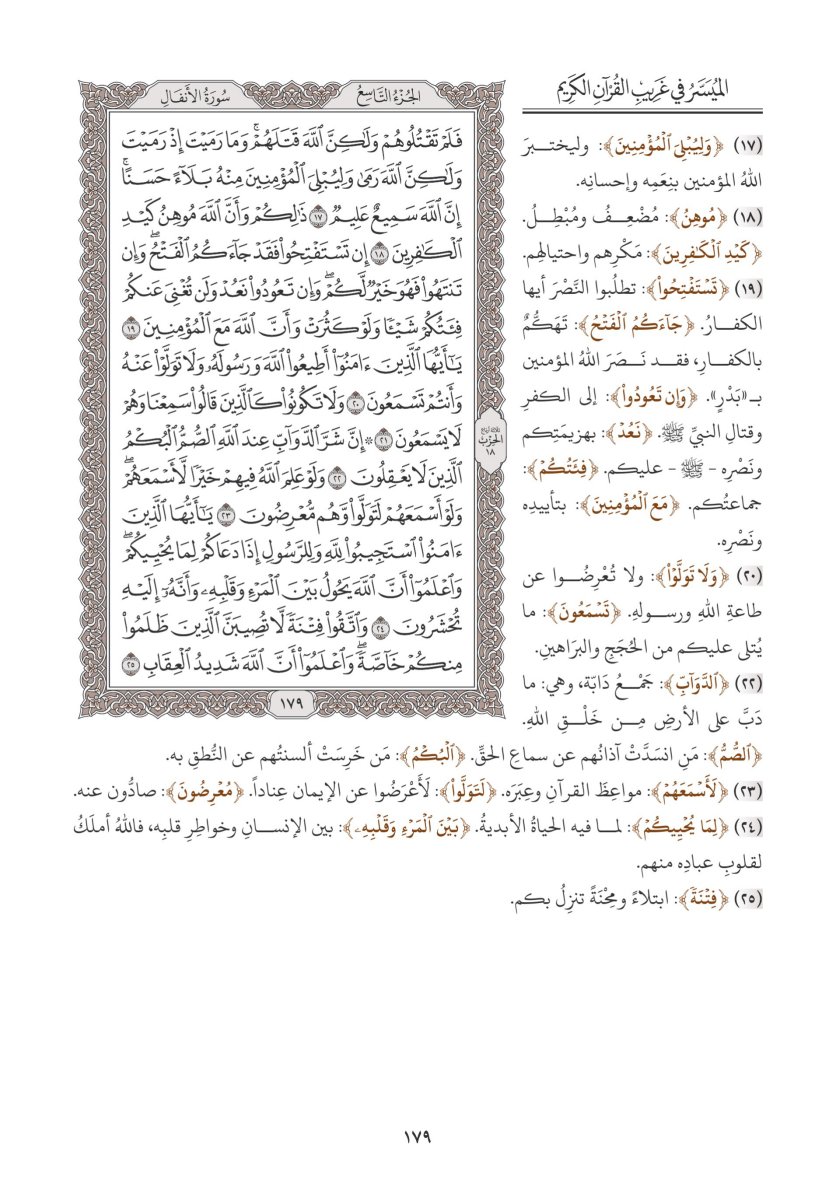 المُيَسَّرُ في غَرِيبِ القُرْآنِ الكَرِيمِ
الجُزْءُ التَّاسِعُ
سُورَةُ الأَنفَالِ
فَلَمْ تَقْتُلُوهُمْ وَلَٰكِنَّ ٱللَّهَ قَتَلَهُمْۚ وَمَا رَمَيْتَ إِذْ رَمَيْتَ
وَلَٰكِنَّ ٱللَّهَ رَمَىٰ وَلِيُبْلِيَ ٱلْمُؤْمِنِينَ مِنْهُ بَلَآءً حَسَنًاۚ
إِنَّ ٱللَّهَ سَمِيعٌ عَلِيمٌ ١٧ ذَٰلِكُمْ وَأَنَّ ٱللَّهَ مُوهِنُ كَيْدِ
ٱلْكَٰفِرِينَ ١٨ إِن تَسْتَفْتِحُوا۟ فَقَدْ جَآءَكُمُ ٱلْفَتْحُۖ وَإِن
تَنتَهُوا۟ فَهُوَ خَيْرٌ لَّكُمْۖ وَإِن تَعُودُوا۟ نَعُدْ وَلَن تُغْنِيَ عَنكُمْ
فِئَتُكُمْ شَيْـًٔا وَلَوْ كَثُرَتْ وَأَنَّ ٱللَّهَ مَعَ ٱلْمُؤْمِنِينَ ١٩
يَٰٓأَيُّهَا ٱلَّذِينَ ءَامَنُوٓا۟ أَطِيعُوا۟ ٱللَّهَ وَرَسُولَهُۥ وَلَا تَوَلَّوْا۟ عَنْهُ
وَأَنتُمْ تَسْمَعُونَ ٢٠ وَلَا تَكُونُوا۟ كَٱلَّذِينَ قَالُوا۟ سَمِعْنَا وَهُمْ
لَا يَسْمَعُونَ ٢١ ۞ إِنَّ شَرَّ ٱلدَّوَآبِّ عِندَ ٱللَّهِ ٱلصُّمُّ ٱلْبُكْمُ
ٱلَّذِينَ لَا يَعْقِلُونَ ٢٢ وَلَوْ عَلِمَ ٱللَّهُ فِيهِمْ خَيْرًا لَّأَسْمَعَهُمْۖ
وَلَوْ أَسْمَعَهُمْ لَتَوَلَّوا۟ وَّهُم مُّعْرِضُونَ ٢٣ يَٰٓأَيُّهَا ٱلَّذِينَ
ءَامَنُوا۟ ٱسْتَجِيبُوا۟ لِلَّهِ وَلِلرَّسُولِ إِذَا دَعَاكُمْ لِمَا يُحْيِيكُمْۖ
وَٱعْلَمُوٓا۟ أَنَّ ٱللَّهَ يَحُولُ بَيْنَ ٱلْمَرْءِ وَقَلْبِهِۦ وَأَنَّهُۥٓ إِلَيْهِ
تُحْشَرُونَ ٢٤ وَٱتَّقُوا۟ فِتْنَةً لَّا تُصِيبَنَّ ٱلَّذِينَ ظَلَمُوا۟
مِنكُمْ خَآصَّةًۖ وَٱعْلَمُوٓا۟ أَنَّ ٱللَّهَ شَدِيدُ ٱلْعِقَابِ ٢٥
ثلاثة أرباع
الحِزْب
١٨
١٧٩
(١٧) ﴿وَلِيُبْلِيَ ٱلْمُؤْمِنِينَ﴾: وليختبرَ
اللهُ المؤمنين بنِعَمِه وإحسانِه.
(١٨) ﴿مُوهِنُ﴾: مُضْعِفُ ومُبْطِلُ.
﴿كَيْدِ ٱلْكَٰفِرِينَ﴾: مَكْرِهم واحتيالِهم.
(١٩) ﴿تَسْتَفْتِحُوا۟﴾: تطلُبوا النَّصْرَ أيها
الكفارُ. ﴿جَآءَكُمُ ٱلْفَتْحُ﴾: تَهَكُّمٌ
بالكفارِ، فقد نَصَرَ اللهُ المؤمنين
بـ «بَدْرٍ». ﴿وَإِن تَعُودُوا۟﴾: إلى الكفرِ
وقتالِ النبيِّ ﷺ. ﴿نَعُدْ﴾: بهزيمَتِكم
ونَصْرِه - ﷺ - عليكم. ﴿فِئَتُكُمْ﴾:
جماعتُكم. ﴿مَعَ ٱلْمُؤْمِنِينَ﴾: بتأييدِه
ونَصْرِه.
(٢٠) ﴿وَلَا تَوَلَّوْا۟﴾: ولا تُعْرِضُوا عن
طاعةِ اللهِ ورسولِهِ. ﴿تَسْمَعُونَ﴾: ما
يُتلى عليكم من الحُجَجِ والبرَاهينِ.
(٢٢) ﴿ٱلدَّوَآبِّ﴾: جَمْعُ دَابّة، وهي: ما
دَبَّ على الأرضِ مِن خَلْقِ اللهِ.
﴿ٱلصُّمُّ﴾: مَنِ انسَدَّتْ آذانُهم عن سماعِ الحقِّ. ﴿ٱلْبُكْمُ﴾: مَن خَرِسَتْ ألسنتُهم عن النُّطقِ به.
(٢٣) ﴿لَّأَسْمَعَهُمْ﴾: مواعِظَ القرآنِ وعِبَرَه. ﴿لَتَوَلَّوا۟﴾: لَأَعْرَضُوا عن الإيمان عِناداً. ﴿مُّعْرِضُونَ﴾: صادُّون عنه.
(٢٤) ﴿لِمَا يُحْيِيكُمْ﴾: لما فيه الحياةُ الأبديةُ. ﴿بَيْنَ ٱلْمَرْءِ وَقَلْبِهِۦ﴾: بين الإنسانِ وخواطِرِ قلبِه، فاللهُ أملَكُ
لقلوبِ عبادِه منهم.
(٢٥) ﴿فِتْنَةً﴾: ابتلاءً ومِحْنَةً تنزِلُ بكم.
١٧٩